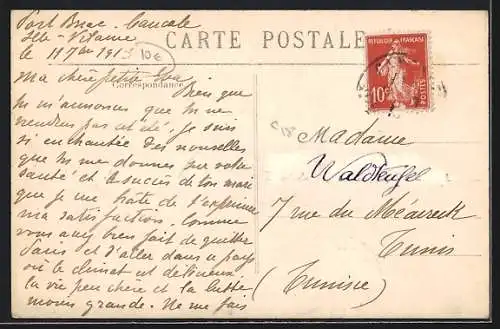 Port Briac. Cancale
Ille-Vilaine
le 11 7bre 191
10€
CARTE POSTALE
Ma chère petite
Correspondance
Bien que
tu m'annonces que tu ne
viendras pas cet été, je suis
si enchantée des nouvelles
que tu me donnes sur votre
santé et le succès de ton mari
que je me hâte de t'exprimer
ma satisfaction. Comme
vous avez bien fait de quitter
Paris et d'aller dans ce pays
où le climat est délicieux
la vie peu chère et la lutte
moins grande. Ne me fais
REPUBLIQUE FRANÇAISE
10c
POSTES
Madame
Waldteufel
7 rue du
Tunis
(Tunisie)